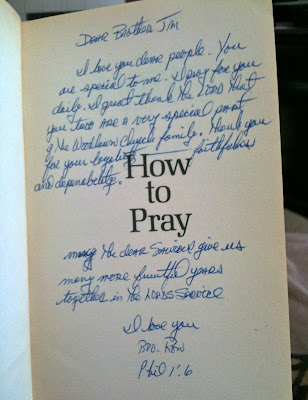 Dear Brother Jim
I love you dear people. You
are special to me. I pray for you
daily. I great thank the LORD that
you two are a very special part
of the Woodlawn Church family. Thank you
for your loyalty faithfulness
and dependability.
How
to
Pray
may the dear Saviour give us
many more fruitful years
together in the LORDS Service
I love you
Bro. Ron
Phil 1:6